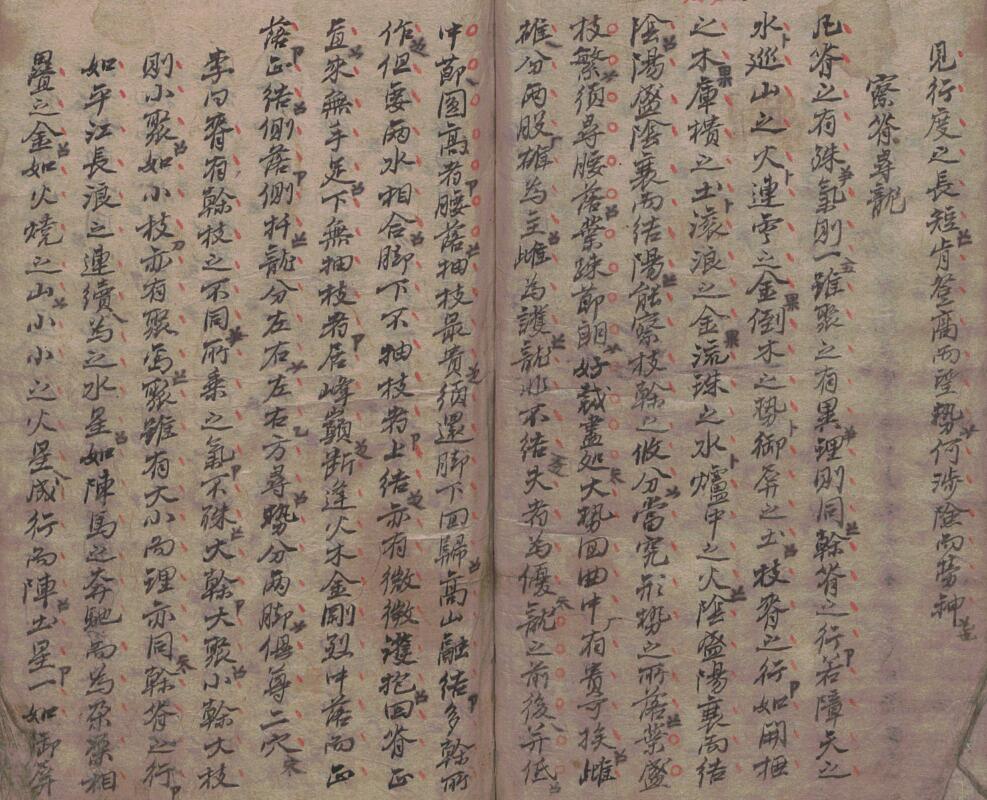 見行度之長短肯登高而望勢何涉險而勞神
察脊尋龍
凡脊之有殊氣則一雖聚之有異理則同幹脊之行若障天之
水巡山之火連雲之金倒木之勢御屏之土枝脊之行如開
之木庫櫃之土滾浪之金流珠之水爐中之火陰盛陽衰而結
陰陽盛陰衰而結陽能察枝幹之收分當究形勢之所落葉盛
枝繁須尋腰落葉踈節朗好裁盡处大勢回曲中有貴可挨雌
雄分兩股雄為主雌為護龍兆不結失者為優龍之前後并低
中節園高者腰落抽枝最貴須還脚下回歸高山融結多幹所
作但要兩水相合脚下不抽枝者上結亦有微微護抱回脊正
直來無手足下無抽枝者居峰巔断逢火木金剛烈中落而正
落正結側落側扦龍分左右左右方尋勢分兩脚俱尋二穴
李曰脊有幹枝之不同所乘之氣不殊大幹大聚小幹大枝
則小聚如小枝亦有聚焉聚雖有大小而理亦同幹脊之行
如平江長浪之連續為之水星如陣馬之奔馳而為相
疊之金如火燒之山小小之火星成行而陣土星一如御屏